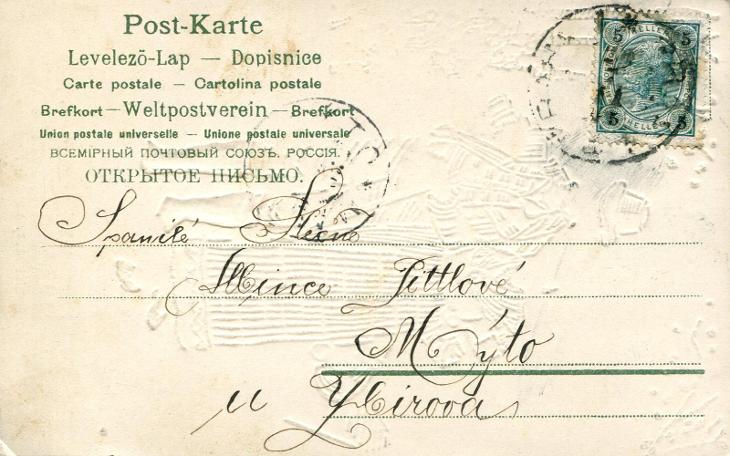 Post-Karte
Levelező-Lap — Dopisnice
Carte postale — Cartolina postale
Brefkort — Weltpostverein — Brefkort
Union postale universelle — Unione postale universale
ВСЕМІРНЫЙ ПОЧТОВЫЙ СОЮЗЪ. РОССІЯ.
ОТКРЫТОЕ ПИСЬМО.
5 HELLER 5
5 HELLER 5
Spanilé Slečně
Mince Pittlové
Mýto
u